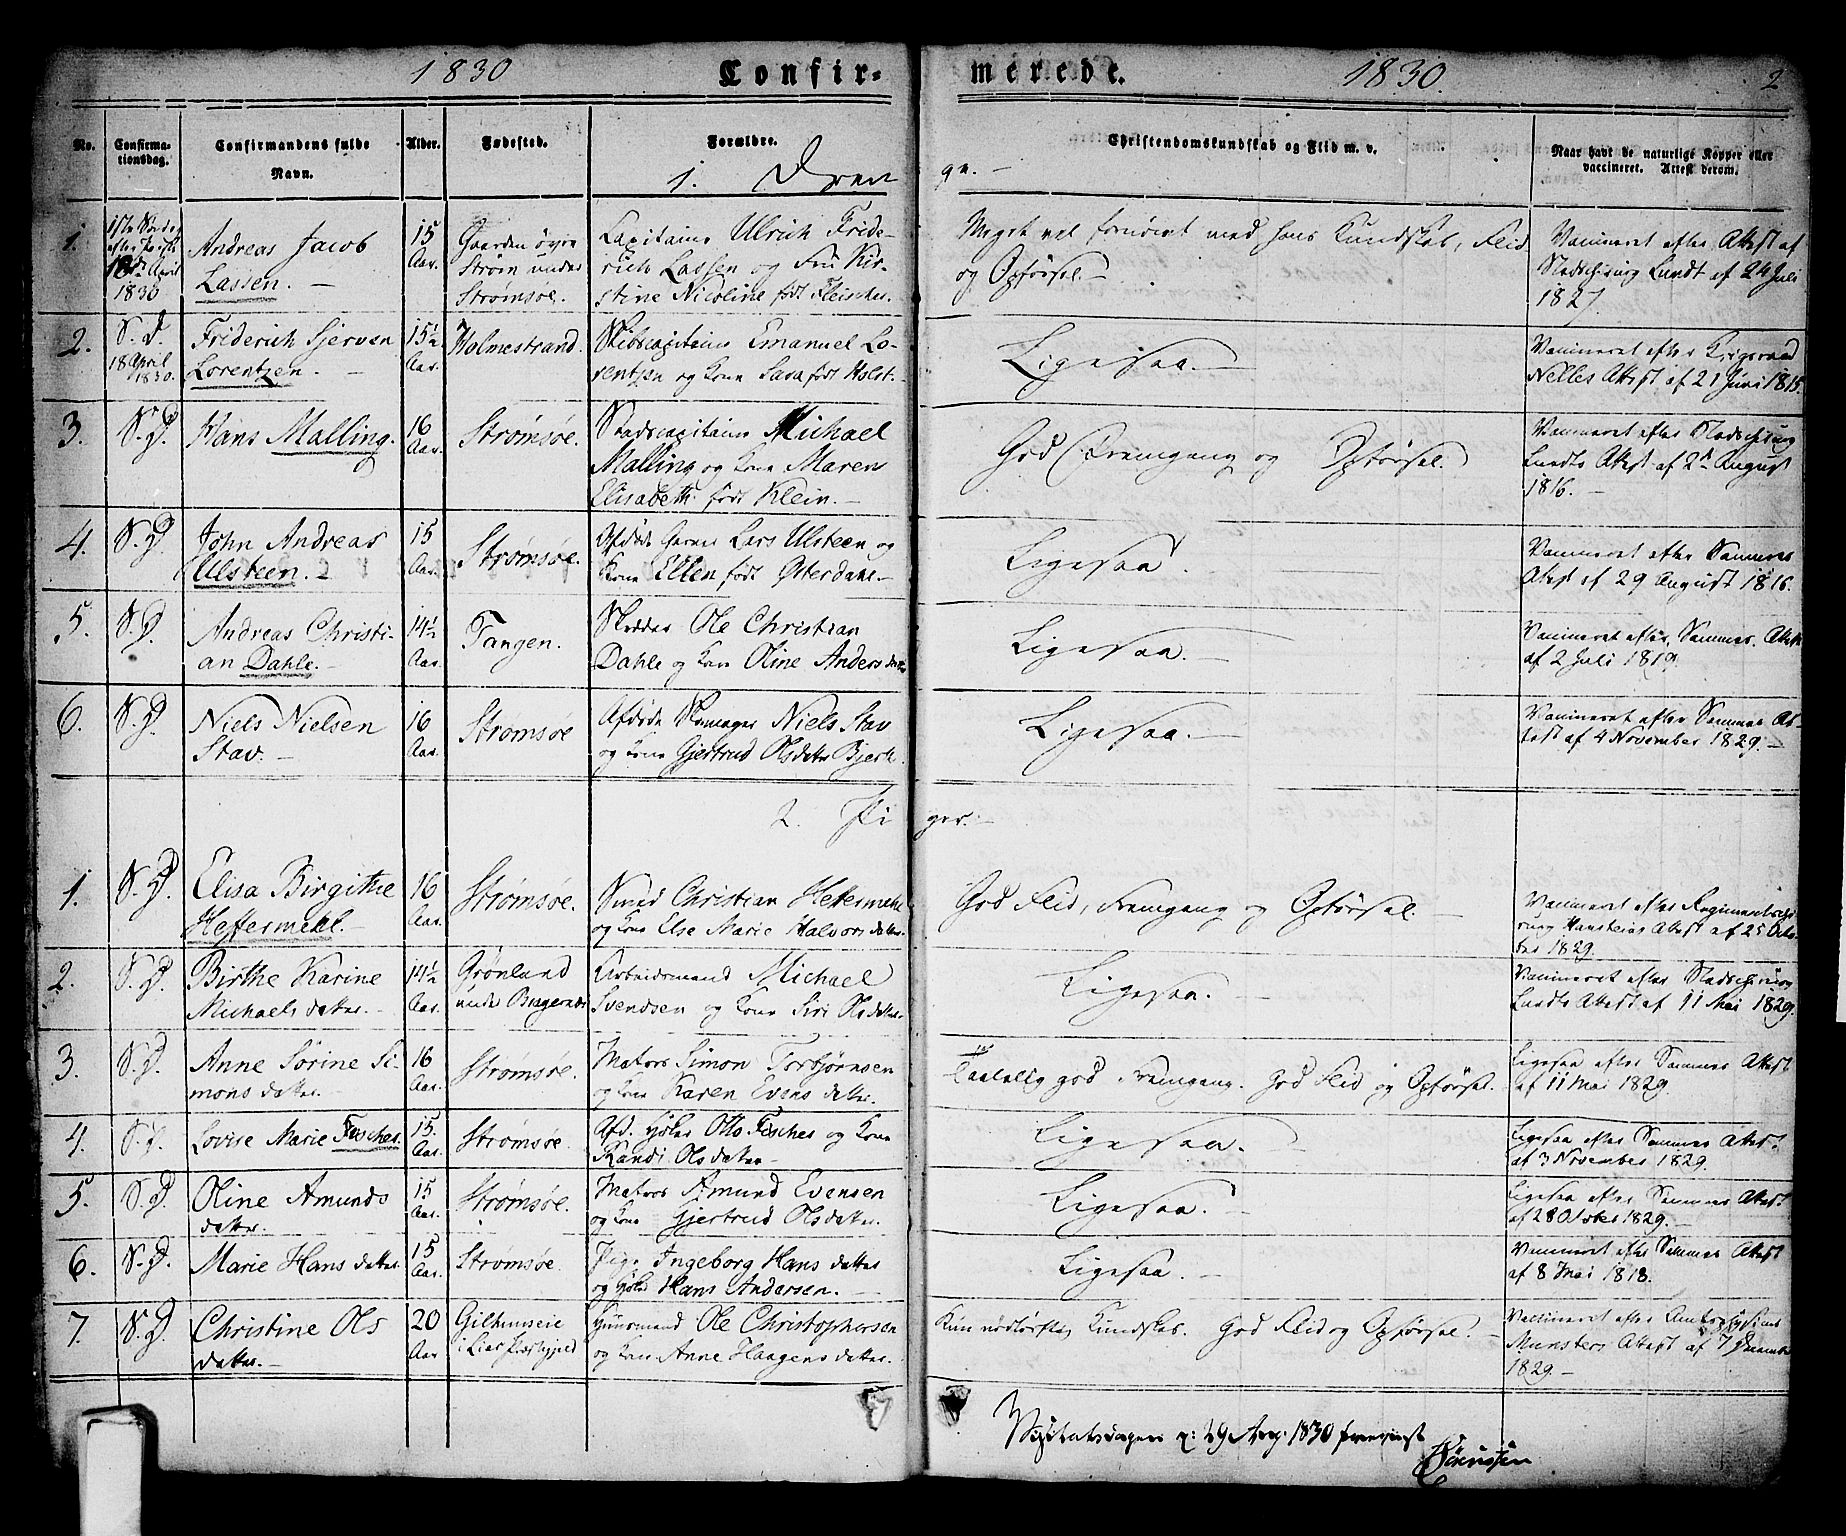 1830 Confir-
merede. 1830. 2
No. Confirma-tionsdag. Confirmandens fulde Navn. Alder. Fødested. Forældre.
Christendomskundskab og Flid m. v. Naar havt de naturlige Kopper eller vaccineret. Attest derom.
1. Dren
ge. -
1. 1ste Søndag efter 18de April 1830 Andreas Jacob Lassen. - 15 Aar. Gaarden øvre Strøm under Strømsøe. Capitaine Ulrich Fride-
rich Lassen og Fru Kir-
stine Nicoline født Fleischer.
Meget vel fornøiet med hans Kundskab, Flid
og Opførsel -
Vaccineret efter Attest af
Stadschirurg Lundt af 24 Juli
1827.
2. S. D. 18 April 1830. Friderich Sjerven Lorentzen. - 15½ Aar. Holmestrand. Skibscapitaine Emanuel Lo-
rentzen og Kone Sara født Holst.
Ligesaa. -
Vaccineret efter
Nelles Attest af 21 Juni 1815.
3. S. D. Hans Malling. 16 Aar. Strømsøe. Stadscapitaine Michael
Malling og Kone Maren
Elisabeth født Klein. -
God Fremgang og Opførsel.
Vaccineret efter Stadschirurg
Lundts Attest af 2d August
1816. -
4. S. D. John Andreas Ulsteen. - 15 Aar. Strømsøe. Afdøde Lars Ulsteen og
Kone Ellen født Østerdahl. -
Ligesaa.
Vaccineret efter Sammes
Attest af 29 August 1816.
5. S. D. Andreas Christi-
an Dahle. - 14½ Aar. Tangen. Skrædder Ole Christian
Dahle og Kone Oline Andersdatter
Ligesaa. -
Vaccineret efter Sammes Attest
af 2 Juli 1819.
6. S. D. Niels Nielsen
Stav. - 16 Aar. Strømsøe Afdøde Skomager Niels Stav
og Kone Gjertrud Olsdatter Bjerk.
Ligesaa. -
Vaccineret efter Sammes At-
test af 4 November 1829. -
2. Pi
ger. -
1. S. D. Elisa Birgithe
Heftermehl. - 16 Aar. Strømsøe. Smed Christian Heftermehl
og Kone Else Marie Halvorsdatter.
God Flid, Fremgang og Opførsel. -
Vaccineret efter Regimentschi-
rurg Hansteins Attest af 25 Octo-
ber 1829.
2. S. D. Birthe Karine
Michaelsdatter. - 14½ Aar. Grønland
under Bragernes Arbeidsmand Michael
Svendsen og Kone Siri Olsdatter.
Ligesaa. -
Vaccineret efter Stadschirurg
Lundts Attest af 11 Mai 1829.
3. S. D. Anne Sørine Si-
monsdatter. - 16 Aar. Strømsøe. Matros Simon Torbjørnsen
og Kone Karen Evensdatter.
Taalelig god Fremgang. God Flid og Opførsel.
Ligesaa efter Sammes Attest
af 11 Mai 1829.
4. S. D. Lovise Marie Fischer. 15. Aar. Strømsøe. Afd. Otto Fischer og Kone
Randi Olsdatter -
Ligesaa. -
Ligesaa efter Sammes Attest
af 3 November 1829.
5. S. D. Oline Amunds
datter. 15 Aar. Strømsøe. Matros Amund Evensen
og Kone Gjertrud Olsdatter.
Ligesaa. -
Ligesaa efter Sammes Attest
af 28 October 1829. -
6. S. D. Marie Hansdatter. 15 Aar. Strømsøe. Pige Ingeborg Hansdatter
og Hans Andersen. -
Ligesaa. -
Vaccineret efter Sammes Attest
af 8 Mai 1818.
7. S. D. Christine Ols
datter. - 20 Aar Gilhuuseie
i Lier Præstegjeld Huusmand Ole Christophersen
og Kone Anne Haagensdatter.
Kun nødtørftig Kundskab. God Flid og Opførsel. -
Vaccineret efter Amtsphysicus
Munsters Attest af 7 December
1829. -
Visitatsdagen d: 29 Aug. 1830 foreviist
Sörenssen